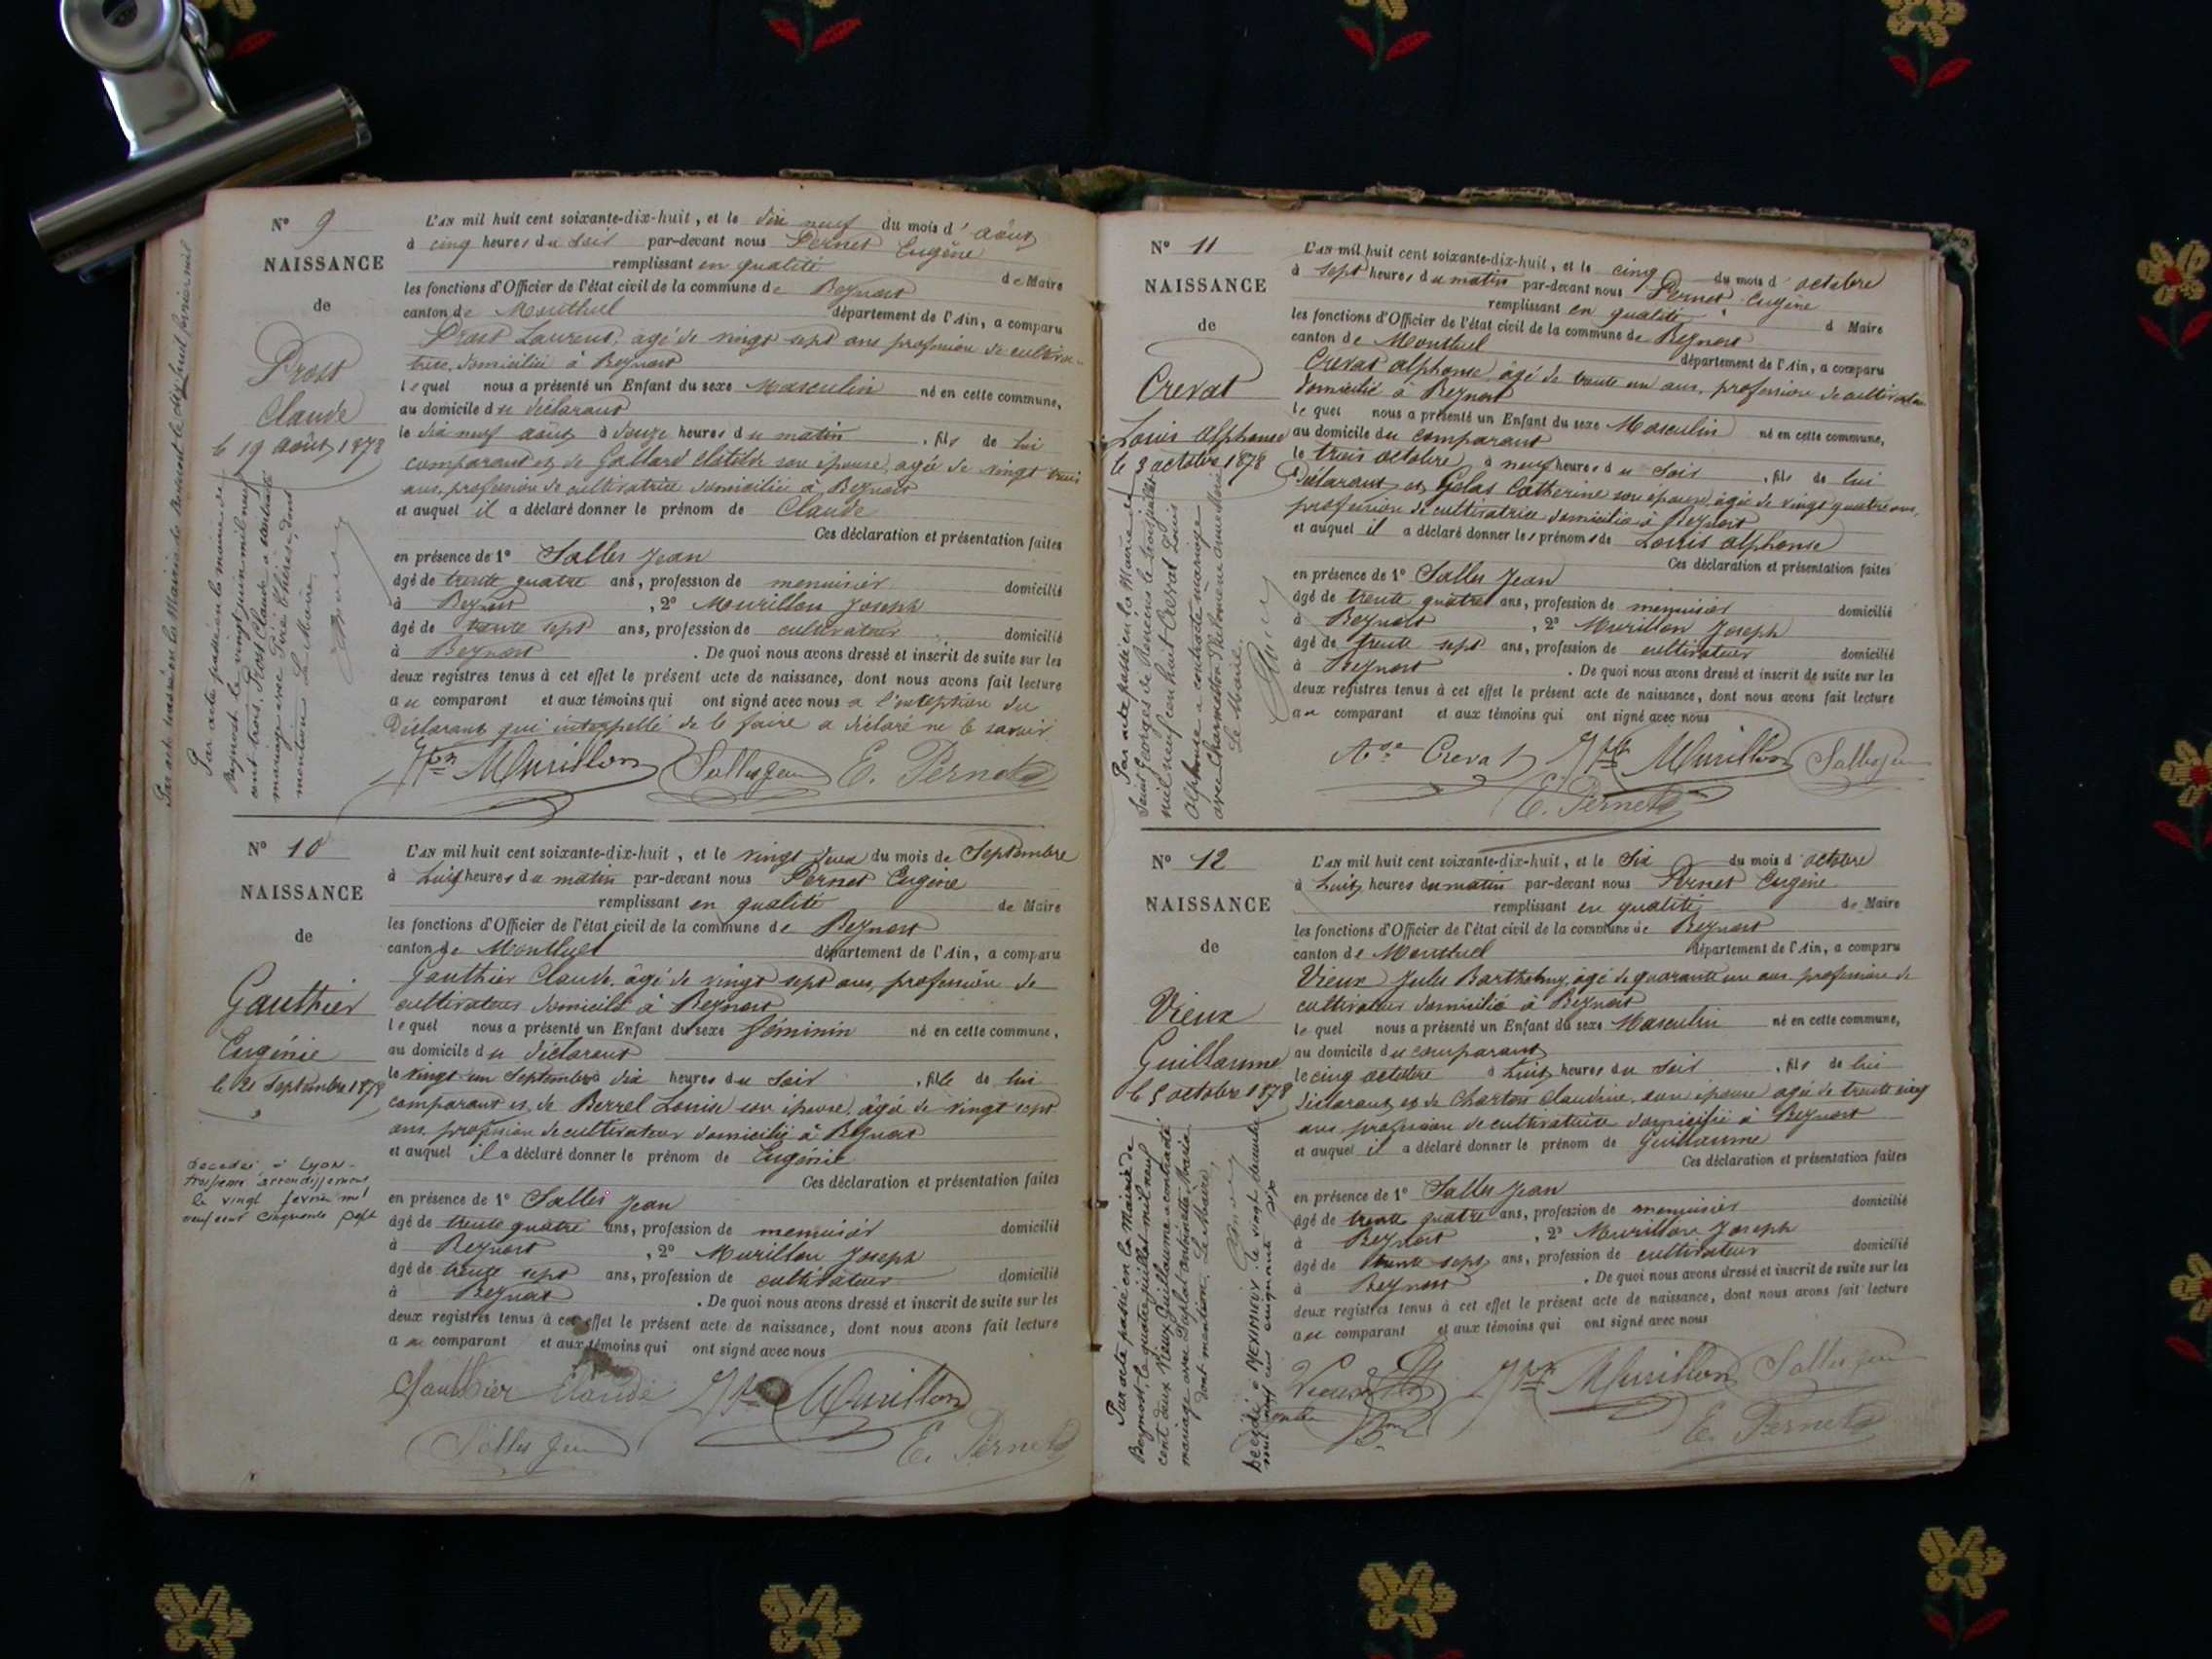 N° 9
NAISSANCE
de
Prost
Claude
le 19 août 1878
Par acte passé en la mairie de
Beynost le vingt juin mil neuf
cent trois, Prost Claude a contracté
mariage avec Thérèse, dont
mention. Le Maire
L'AN mil huit cent soixante-dix-huit, et le dix neuf du mois d'août
à cinq heures du soir par-devant nous Pernet Eugène
remplissant en qualité de Maire
les fonctions d'Officier de l'état civil de la commune de Beynost
canton de Montluel département de l'Ain, a comparu
Prost Laurent, agé de vingt sept ans profession de cultiva-
teur, domicilié à Beynost
lequel nous a présenté un Enfant du sexe Masculin né en cette commune,
au domicile du déclarant
le dix neuf août à douze heures du matin, fils de lui
comparant et de Gallard Clotilde son épouse, agée de vingt trois
ans, profession de cultivatrice domiciliée à Beynost
et auquel il a déclaré donner le prénom de Claude
Ces déclaration et présentation faites
en présence de 1° Salles Jean
âgé de trente quatre ans, profession de menuisier domicilié
à Beynost, 2° Murillon Joseph
âgé de trente sept ans, profession de cultivateur domicilié
à Beynost. De quoi nous avons dressé et inscrit de suite sur les
deux registres tenus à cet effet le présent acte de naissance, dont nous avons fait lecture
au comparant et aux témoins qui ont signé avec nous a l'exception du
Déclarant qui interpellé de le faire a déclaré ne le savoir
Jph Murillon Salles Jean E. Pernet
N° 10
NAISSANCE
de
Gauthier
Eugénie
le 21 Septembre 1878
décédée à Lyon
troisième arrondissement
le vingt février mil
neuf cent cinquante sept
L'AN mil huit cent soixante-dix-huit, et le vingt deux du mois de Septembre
à huit heures du matin par-devant nous Pernet Eugène
remplissant en qualité de Maire
les fonctions d'Officier de l'état civil de la commune de Beynost
canton de Montluel département de l'Ain, a comparu
Gauthier Claude, âgé de vingt sept ans, profession de
cultivateur domicilié à Beynost
lequel nous a présenté un Enfant du sexe féminin né en cette commune,
au domicile du déclarant
le vingt un Septembre à dix heures du soir, fille de lui
comparant et de Berrel Louise son épouse, âgée de vingt sept
ans, profession de cultivateur domiciliée à Beynost
et auquel il a déclaré donner le prénom de Eugénie
Ces déclaration et présentation faites
en présence de 1° Salles Jean
âgé de trente quatre ans, profession de menuisier domicilié
à Beynost, 2° Murillon Joseph
âgé de trente sept ans, profession de cultivateur domicilié
à Beynost. De quoi nous avons dressé et inscrit de suite sur les
deux registres tenus à cet effet le présent acte de naissance, dont nous avons fait lecture
au comparant et aux témoins qui ont signé avec nous
Gauthier Claude Jph Murillon
Salles Jean E. Pernet
N° 11
NAISSANCE
de
Crevat
Louis Alphonse
le 3 octobre 1878
Par acte passé en la Mairie de
Saint Georges de Reneins le trois juillet
mil neuf cent huit Crevat Louis
Alphonse a contracté mariage
avec Charmetton Philomène Anne Marie
Le Maire
L'AN mil huit cent soixante-dix-huit, et le cinq du mois d'octobre
à sept heures du matin par-devant nous Pernet Eugène
remplissant en qualité d Maire
les fonctions d'Officier de l'état civil de la commune de Beynost
canton de Montluel département de l'Ain, a comparu
Crevat alphonse, âgé de trente un ans, profession de cultivateur
domicilié à Beynost
lequel nous a présenté un Enfant du sexe Masculin né en cette commune,
au domicile du comparant
le trois octobre à neuf heures du soir, fils de lui
Déclarant et Gelas Catherine son épouse, agée de vingt quatre ans,
profession de cultivatrice domiciliée à Beynost
et auquel il a déclaré donner les prénoms de Louis alphonse
Ces déclaration et présentation faites
en présence de 1° Salles Jean
âgé de trente quatre ans, profession de menuisier domicilié
à Beynost, 2° Murillon Joseph
âgé de trente sept ans, profession de cultivateur domicilié
à Beynost. De quoi nous avons dressé et inscrit de suite sur les
deux registres tenus à cet effet le présent acte de naissance, dont nous avons fait lecture
au comparant et aux témoins qui ont signé avec nous
Ase Crevat Jph Murillon Salles Jean
E. Pernet
N° 12
NAISSANCE
de
Vieux
Guillaume
le 5 octobre 1878
Par acte passé en la Mairie de
Beynost, le quatre juillet mil neuf
cent deux Vieux Guillaume a contracté
mariage avec Duplat Antoinette Maria
dont mention. Le Maire,
Décédé à MEXIMIEUX le vingt décembre
mil neuf cent cinquante six
L'AN mil huit cent soixante-dix-huit, et le six du mois d'octobre
à huit heures du matin par-devant nous Pernet Eugène
remplissant en qualité de Maire
les fonctions d'Officier de l'état civil de la commune de Beynost
canton de Montluel département de l'Ain, a comparu
Vieux Jules Barthelmy, âgé de quarante un ans profession de
cultivateur domicilié à Beynost
lequel nous a présenté un Enfant du sexe Masculin né en cette commune,
au domicile du comparant
le cinq octobre à huit heures du soir, fils de lui
déclarant et de Charton Claudine, son épouse agée de trente cinq
ans profession de cultivatrice domiciliée à Beynost
et auquel il a déclaré donner le prénom de Guillaume
Ces déclaration et présentation faites
en présence de 1° Salles Jean
âgé de trente quatre ans, profession de menuisier domicilié
à Beynost, 2° Murillon Joseph
âgé de trente sept ans, profession de cultivateur domicilié
à Beynost. De quoi nous avons dressé et inscrit de suite sur les
deux registres tenus à cet effet le présent acte de naissance, dont nous avons fait lecture
au comparant et aux témoins qui ont signé avec nous
Vieux Jph Murillon Salles Jean
E. Pernet